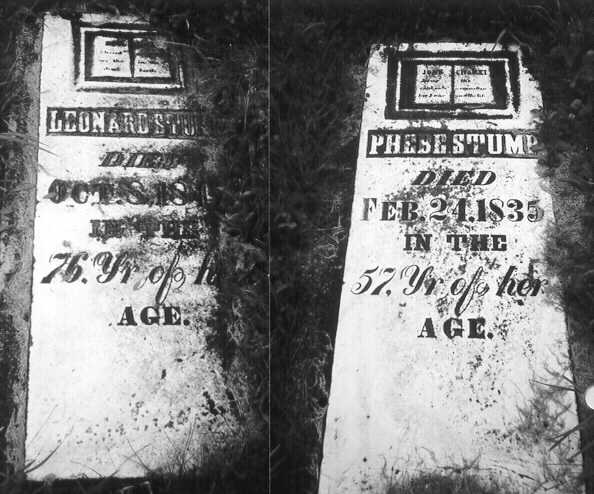 LEONARD STU
DIED
OCT. 8, 18
IN THE
76, Yr of h
AGE.
JOHN
the
PHEBE STUMP
DIED
FEB. 24, 1835
IN THE
57, Yr of her
AGE.